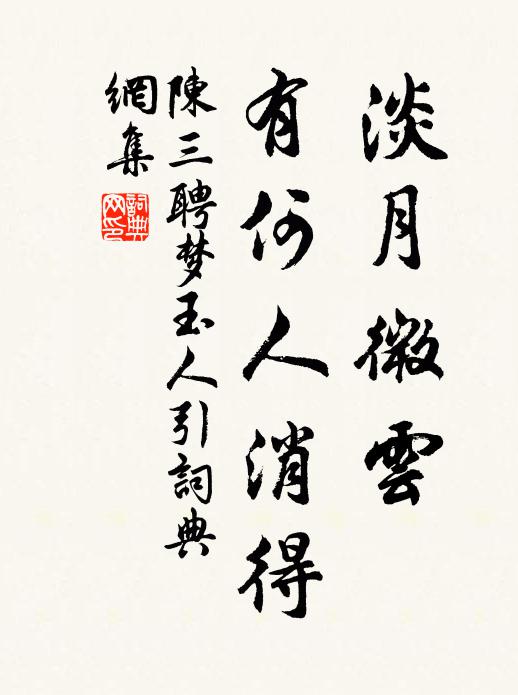 淡月微雲
有何人消得
陳三聘梦玉人引詞典
網集
詞典
网印